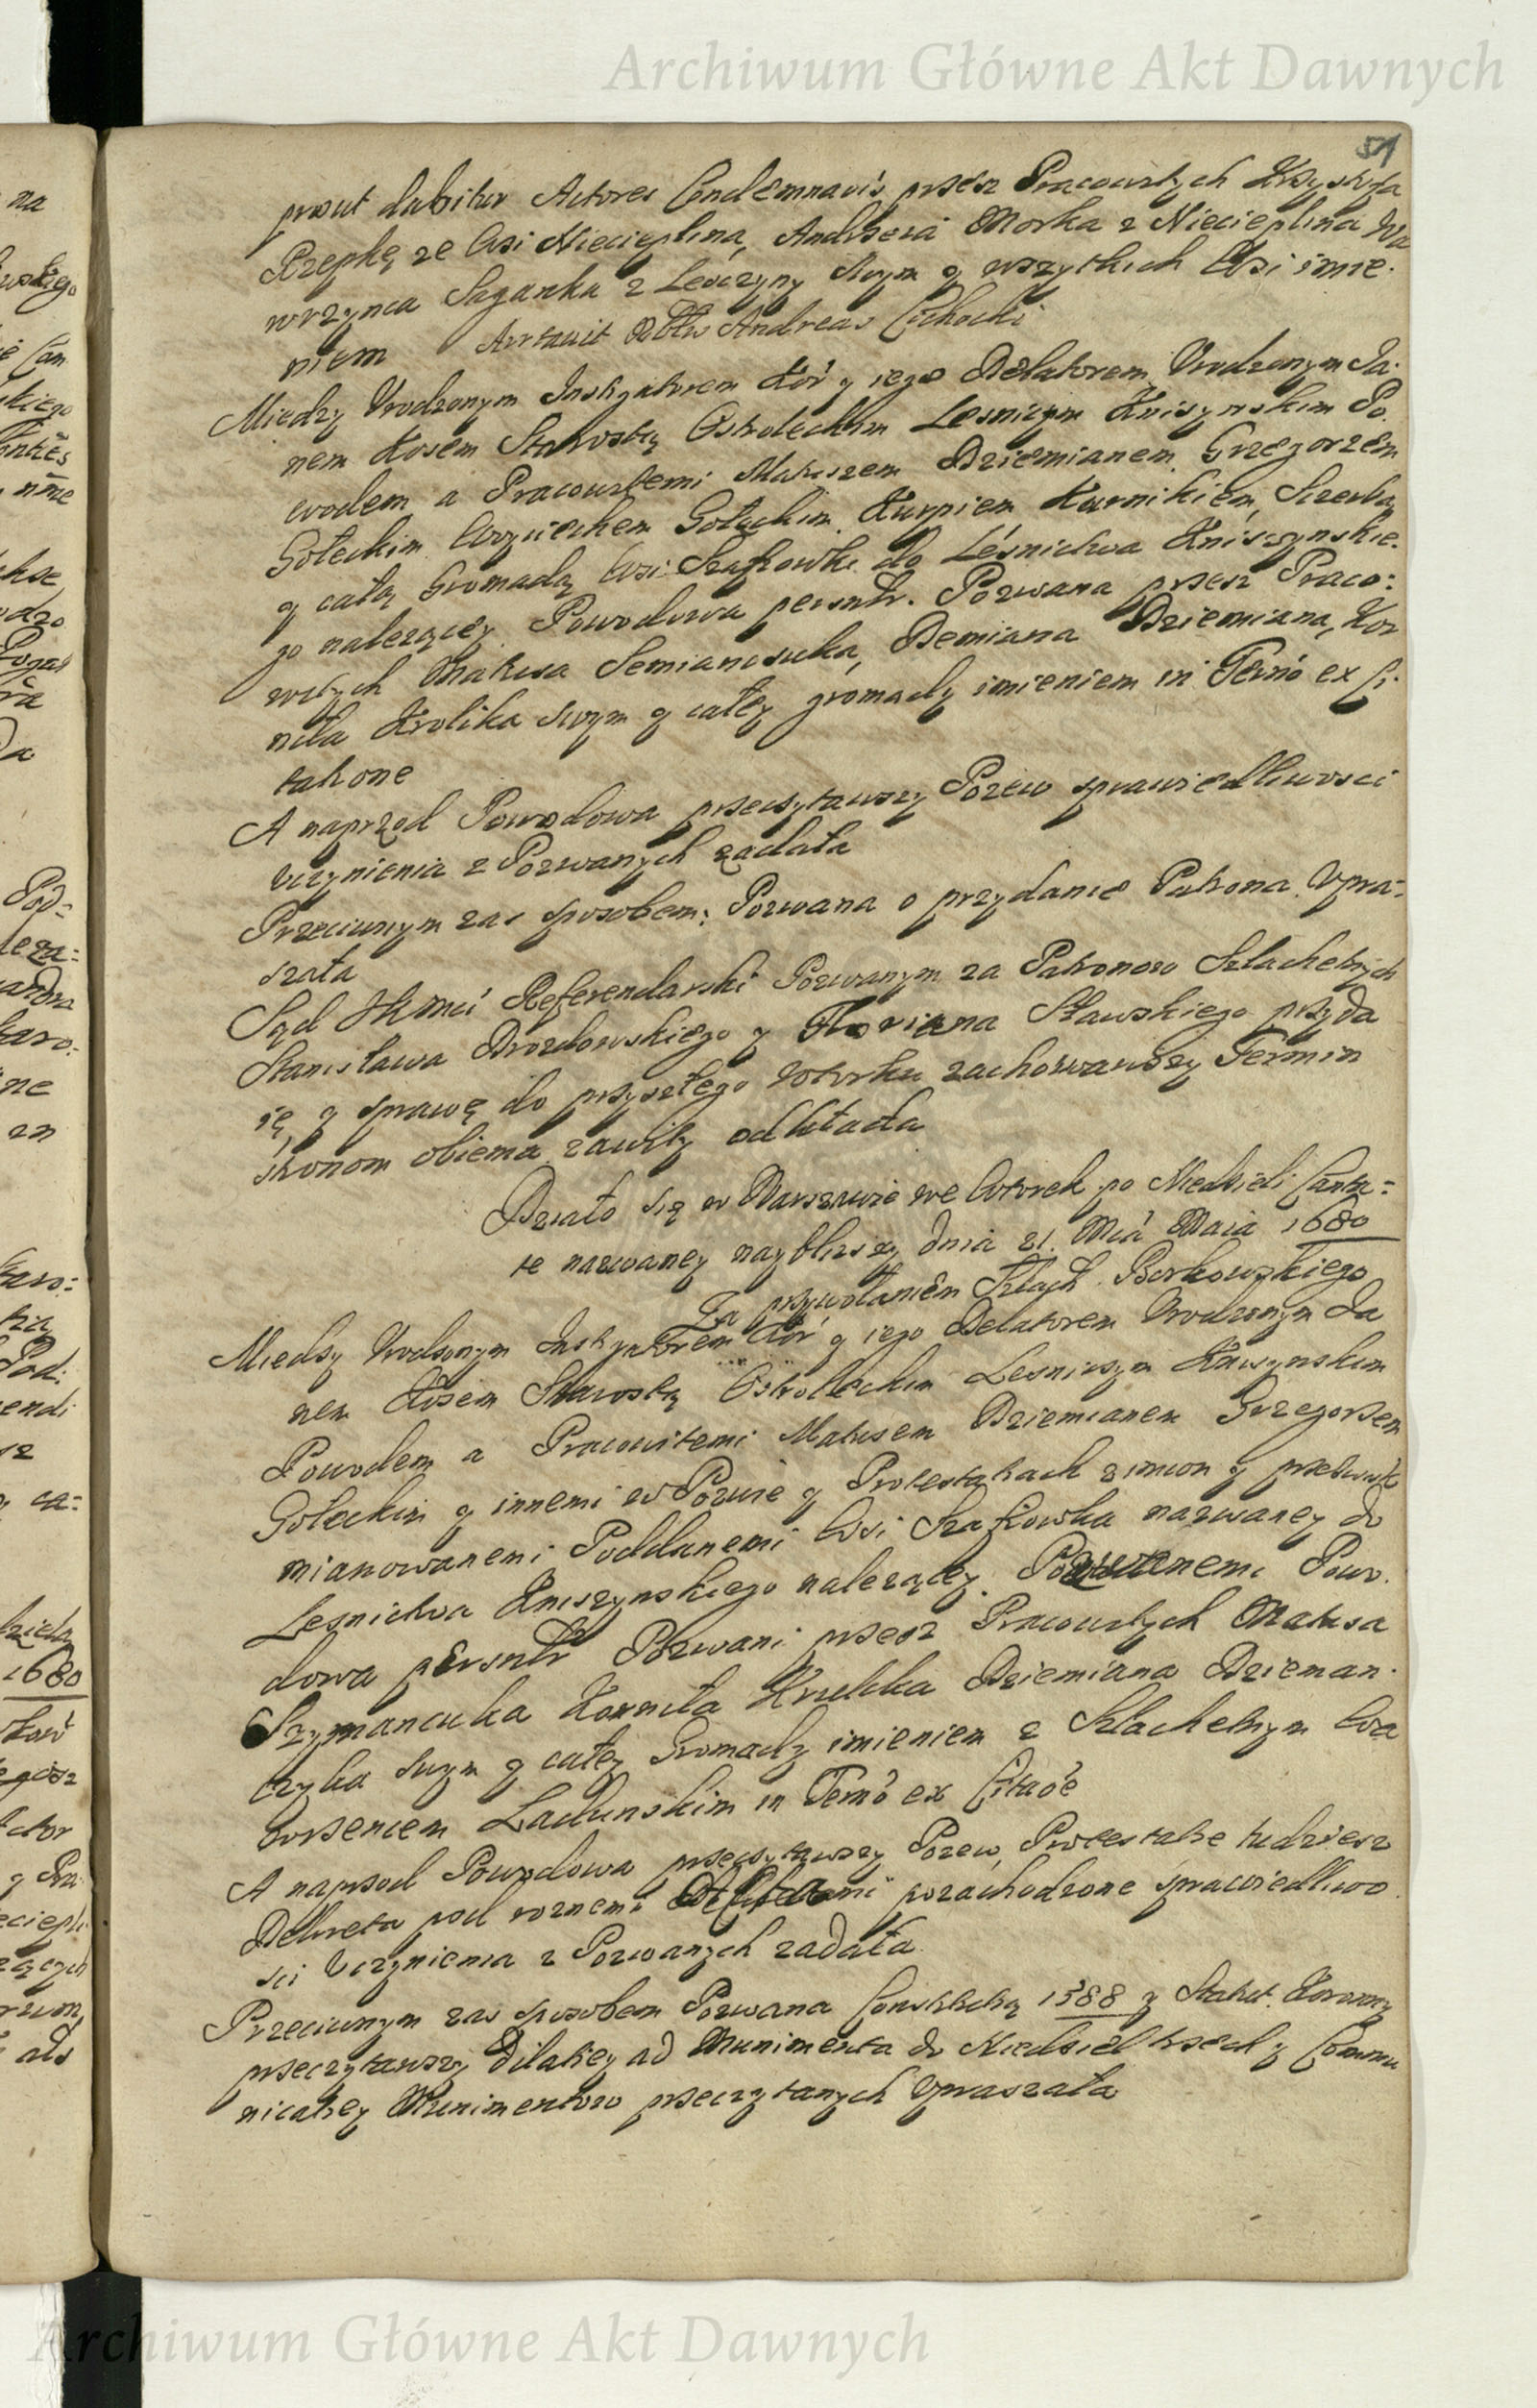 Archiwum Główne Akt Dawnych
51
prout dabitur Actores Condemnavis przez Pracowitych Krzysztofa
Rzepkę ze Wsi Niecieplina, Andrzeia Morka z Niecieplina Wa
wrzynca Saganka z Lesczyny swym y wszytkich Wsi imie:
niem Andreas Cichocki
Miedzy Urodzonym Instygatorem Kor y iego Delatorem Urodzonym Ja:
nem Kosem Starostą Ostroleckim Lesniczym Kniszynskim Po
wodem a Pracowitemi Matuszem Dziemianem Grzegorzem
Goleckim Woyciechem Goleckim Kurpiem Kurnikiem, Szczerbą
y całą Gromadą Wsi Szafkowki do Lesnictwa Kniszynskie:
go nalezącey Powodowa persntr. Pozwana przesz Praco:
witych Matusa Semiancsuka, Demiana Dziemiana, Kor
niła Krolika swym y całey gromady imieniem in Termo ex Ci:
tatione
A naprzod Powodowa przeczytawszy Pozew sprawiedliwosci
Uczynienia z Pozwanych ządała
Przeciwnym zas sposobem: Pozwana o przydanie Patrona Upra:
szała
Sąd JKMci Referendarski Pozwanym za Patronow Szlachetnych
Stanisława Drozdowskiego y Floriana Sławskiego przyda
ię y sprawę do przyszłego Wtorku zachowawszy Termin
stronom obiema zawity odkłada
Działo się w Warszawie we Wtorek po Niedzieli Canta:
te nazwaney naybliższy dnia 21. Mca Maia 1680
Za przywołaniem Szlach. Borkowskiego
Miedzy Urodzonym Instygatorem Kor y iego Delatorem Urodzonym Ja
nem Kosem Starostą Ostroleckim Lesniczym Kniszynskim
Powodem a Pracowitemi Matusem Dziemianem Grzegorzem
Goleckim y innemi w Pozwie y Protestatiach z imion y przezwisk
mianowanemi Poddanemi Wsi Szafkowka nazwaney do
Lesnictwa Kniszynskiego nalezącey Pozwanemi Powo
dowa persntr Pozwani przesz Pracowitych Matusa
Szymancuka Korniła Krulika Dziemiana Dzieman:
czyka swym y całey Gromady imieniem z Szlachetnym Wa
wrzencem Ladunskim in Termo ex Citaoe
A naprzod Powodowa przeczytawszy Pozew, Protestatie tudziesz
Dekreta pod roznemi Actami pozachodzone sprawiedliwo
sci Uczynienia z Pozwanych ządała
Przeciwnym zas sposobem Pozwana Constitutią 1588 y Statut. Koronny
przeczytawszy Dilatiey ad Munimenta do Niedziel trzech y Commu
nicatiey Munimentow przeczytanych Upraszała
Archiwum Główne Akt Dawnych